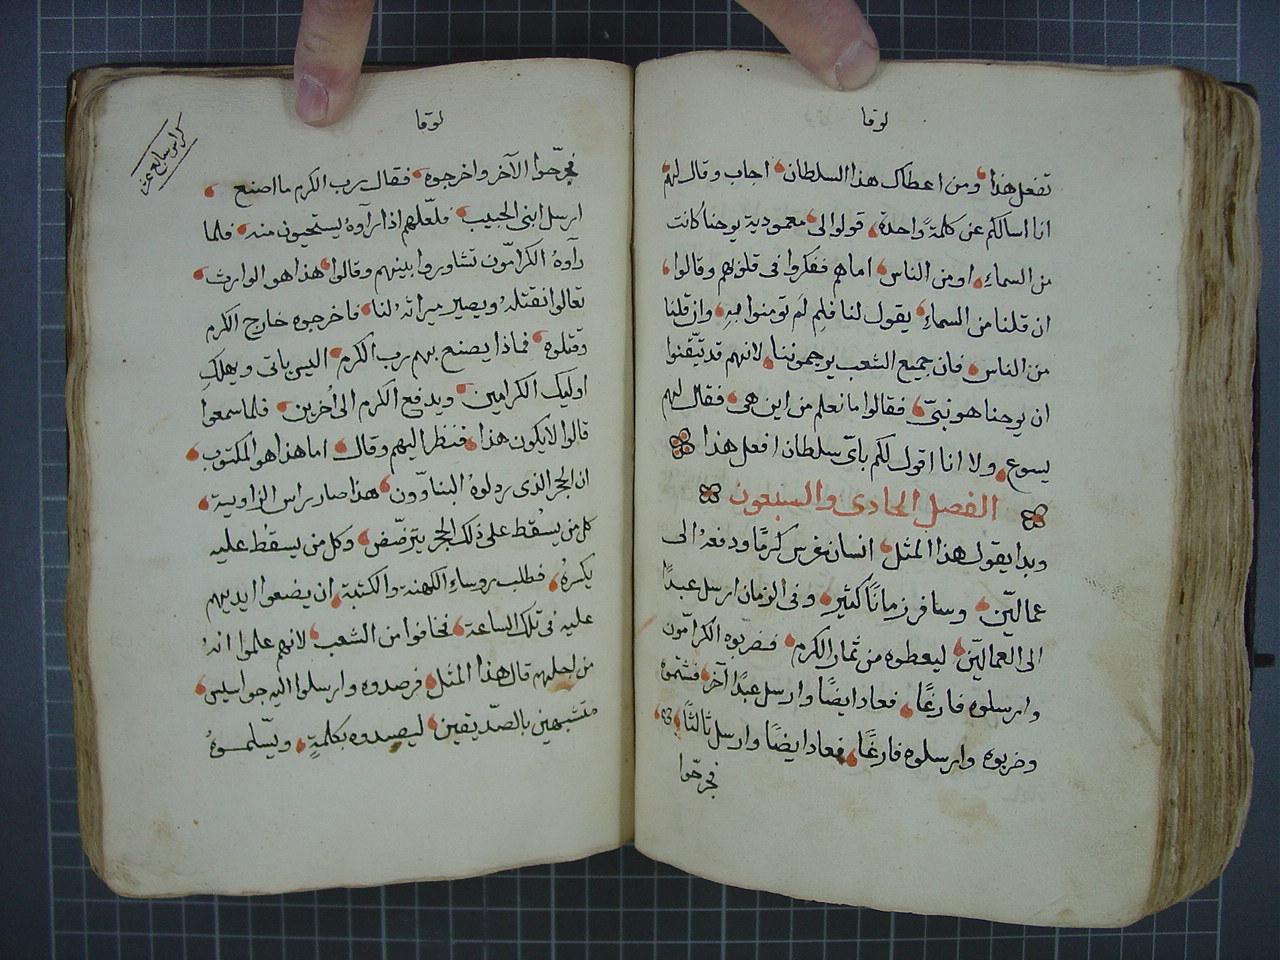 لوقا
تفعل هذا ومن اعطاك هذا السلطان اجاب وقال لهم
انا اسالكم عن كلمةً واحدة قولوا لى معمودية يوحنا كانت
من السماءِ او من الناس اما هم ففكروا فى قلوبهم وقالوا
ان قلنا من السماءِ يقول لنا فلِم لم تومنوا بهِ وان قلنا
من الناس فان جميع الشعب يرجموننا لانهم قد تيّقنوا
ان يوحنا هو نبىّ فقالوا ما نعلم من اين هى فقال لهم
يسوع ولا انا اقول لكم باىّ سلطان افعل هذا
الفصل الحادى والسبعون
وبدا يقول هذا المثل انسان غرس كرمًا ودفعهُ الى
عمالّين وسافر زمانًا كثير وفى الزمان ارسل عبدًا
الى العمالّين ليعطوه من ثمار الكرم فضربوه الكرامّون
وارسلوه فارغًا فعاد ايضًا وارسل عبدًا آخر فشتموه
وضربوه وارسلوه فارغًا فعاد ايضًا وارسل ثالثًا
فجرحّوا
لوقا
كراس سابع عشر
فجرحّوا الآخر واخرجوه فقال رب الكرم ما اصنع
ارسل ابنى الحبيب فلعّلهم اذا راوهُ يستحيون منه فلما
رآوهُ الكرامّون تشاوروا بينهم وقالوا هذا هو الوارث
تعالوا نقتلهُ ويصير ميراثهُ لنا فاخرجوه خارج الكرم
وقتلوه فماذا يصنع بهم رب الكرم اليس ياتى ويهلك
اوليك الكرامين ويدفع الكرم الى اخرين فلما سمعوا
قالوا لا يكون هذا فنظر اليهم وقال اما هذا هو المكتوب
ان الحجر الذى رذلوهُ البناوّون هذا صار راس الزاوية
كل من يسقط على ذلك الحجر يترضّض وكل من يسقط عليه
يكسرهُ فطلب روساءِ الكهنة والكتبة ان يضعوا ايديهم
عليه فى تلك الساعة فخافوا من الشعب لانهم علموا انهُ
من اجلهم قال هذا المثل فرصدوه وارسلوا اليه جواسيس
متشبهين بالصّديقين ليصيدوه بكلمةٍ ويسّلمـوهُ